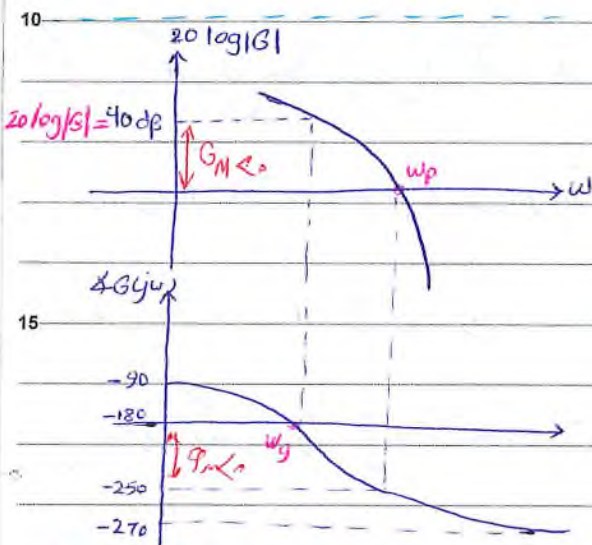 10
20 log|G|
20 log|G| = 40 dβ
G_M < 0
ωp
ω
∡G(jω)
15
-90
-180
ωg
φ_M < 0
-250
-270